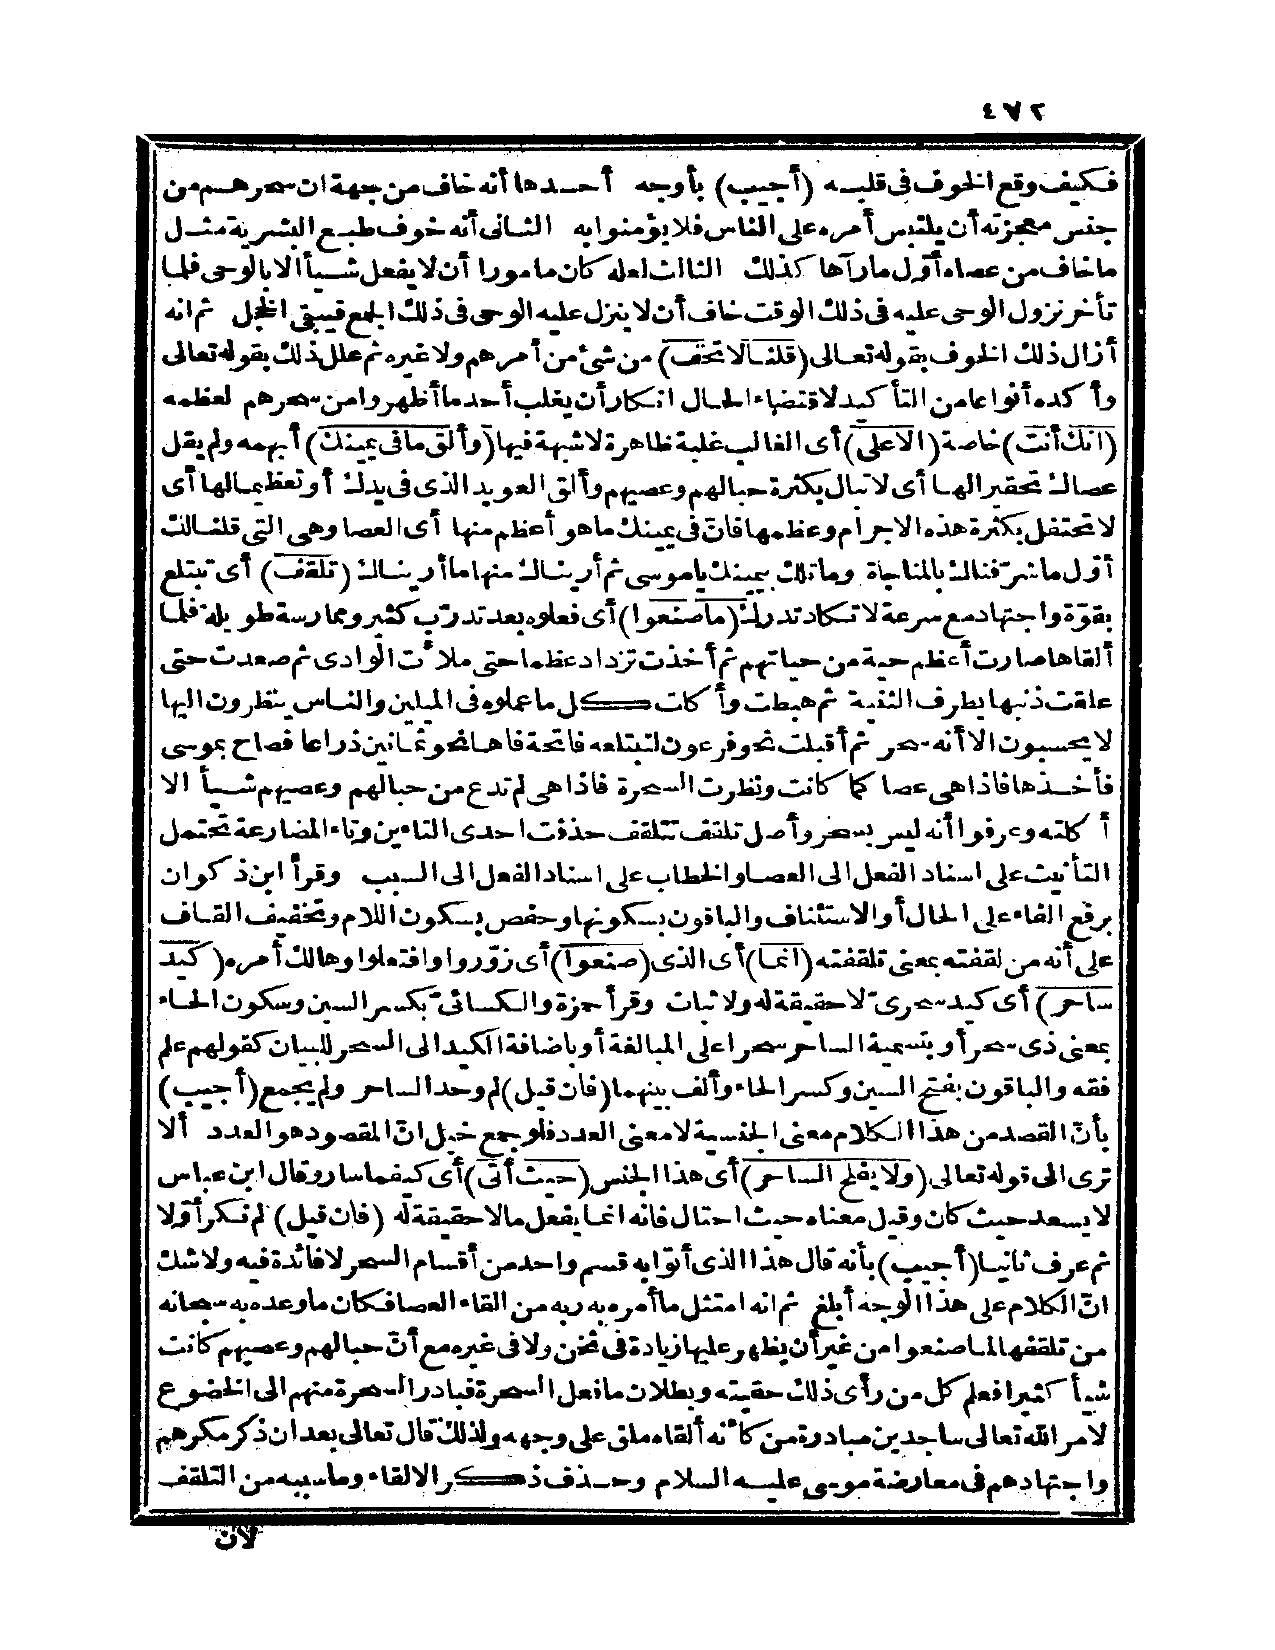 ٤٧٢
فكيف وقع الخوف فى قلبه (أجيب) بأوجه أحدها أنه خاف من جهة ان سحرهم من
جنس معجزته أن يلتبس أمره على الناس فلا يؤمنوا به الثانى أنه خوف طبع البشرية مثل
ما خاف من عصاه أوّل ما رآها كذلك الثالث لعله كان مامورا أن لا يفعل شيأ الا بالوحى فلما
تأخر نزول الوحى عليه فى ذلك الوقت خاف أن لا ينزل عليه الوحى فى ذلك الجمع فيبقى الخجل ثم انه
أزال ذلك الخوف بقوله تعالى (قلنا لا تخف) من شئ من أمرهم ولا غيره ثم علل ذلك بقوله تعالى
وأكده أنواعا من التأكيد لاقتضاء الحال انكار أن يغلب أحد ما أظهروا من سحرهم لعظمه
(انك أنت) خاصة (الاعلى) أى الغالب غلبة ظاهرة لا شبهة فيها (وألق ما فى يمينك) أبهمه ولم يقل
عصاك تحقيرا لها أى لا تبال بكثرة حبالهم وعصيهم وألق العويد الذى فى يدك أو تعظيما لها أى
لا تحتفل بكثرة هذه الاجرام وعظمها فانّ فى يمينك ما هو أعظم منها أى العصا وهى التى قلنا لك
أوّل ما شرّفناك بالمناجاة وما تلك بيمينك يا موسى ثم أريناك منها ما أريناك (تلقف) أى تبتلع
بقوّة واجتهاد مع سرعة لا تكاد تدرك (ما صنعوا) أى فعلوه بعد تدرّب كثير وممارسة طويلة فلما
ألقاها صارت أعظم حية من حياتهم ثم أخذت تزداد عظما حتى ملأت الوادى ثم صعدت حتى
علقت ذنبها بطرف القبة ثم هبطت وأكلت كل ما عملوه فى الميلين والناس ينظرون اليها
لا يحسبون الا أنه سحر ثم أقبلت نحو فرعون لتبتلعه فاتحة فاها نحو ثمانين ذراعا فصاح بموسى
فأخذها فاذا هى عصا كما كانت ونظرت السحرة فاذا هى لم تدع من حبالهم وعصيهم شيأ الا
أكلته وعرفوا أنه ليس بسحر وأصل تلقف تتلقف حذفت احدى التاءين وتاء المضارعة تحتمل
التأنيث على اسناد الفعل الى العصا والخطاب على اسناد الفعل الى السبب وقرأ ابن ذكوان
برفع الفاء على الحال أو الاستئناف والباقون بسكونها وحفص بسكون اللام وتخفيف القاف
على أنه من لقفته بمعنى تلقفته (انما) أى الذى (صنعوا) أى زوّروا وافتعلوا وهالك أمره (كيد
ساحر) أى كيد سحرىّ لا حقيقة له ولا ثبات وقرأ حمزة والكسائىّ بكسر السين وسكون الحاء
بمعنى ذى سحر أو بتسمية الساحر سحرا على المبالغة أو باضافة الكيد الى السحر للبيان كقولهم علم
فقه والباقون بفتح السين وكسر الحاء وألف بينهما (فان قيل) لم وحد الساحر ولم يجمع (أجيب)
بأنّ القصد من هذا الكلام معنى الجنسية لا معنى العدد فلو جمع خيل انّ المقصود هو العدد ألا
ترى الى قوله تعالى (ولا يفلح الساحر) أى هذا الجنس (حيث أتى) أى كيفما سار وقال ابن عباس
لا يسعد حيث كان وقيل معناه حيث احتال فانه انما يفعل ما لا حقيقة له (فان قيل) لم نكر أوّلا
ثم عرف ثانيا (أجيب) بأنه قال هذا الذى أتوا به قسم واحد من أقسام السحر لا فائدة فيه ولا شك
انّ الكلام على هذا الوجه أبلغ ثم انه امتثل ما أمره به ربه من القاء العصا فكان ما وعده به سبحانه
من تلقفها لما صنعوا من غير أن يظهر عليها زيادة فى ثخن ولا فى غيره مع أنّ حبالهم وعصيهم كانت
شيأ كثيرا فعلم كل من رأى ذلك حقيته وبطلان ما فعل السحرة فبادر السحرة منهم الى الخضوع
لامر الله تعالى ساجدين مبادرة من كأنه ألقاه ملق على وجهه ولذلك قال تعالى بعد ان ذكر مكرهم
واجتهادهم فى معارضة موسى عليه السلام وحذف ذكر الالقاء وما سببه من التلقف
لان